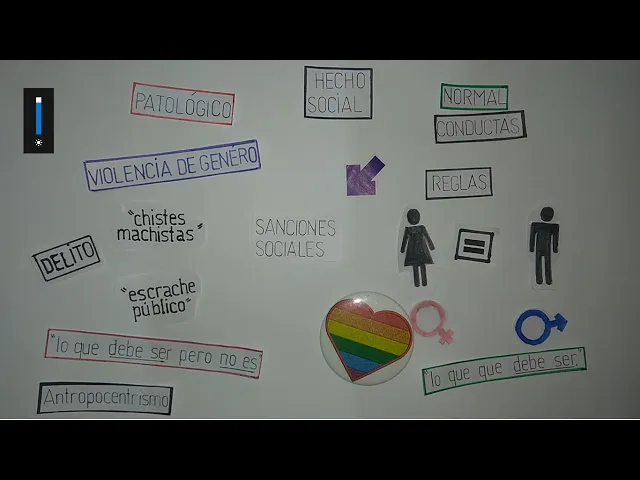 HECHO
SOCIAL
PATOLÓGICO
NORMAL
CONDUCTAS
VIOLENCIA DE GENÉRO
REGLAS
"chistes
machistas"
SANCIONES
SOCIALES
DELITO
"escrache
público"
"lo que debe ser pero no es"
"lo que que debe ser."
Antropocentrismo